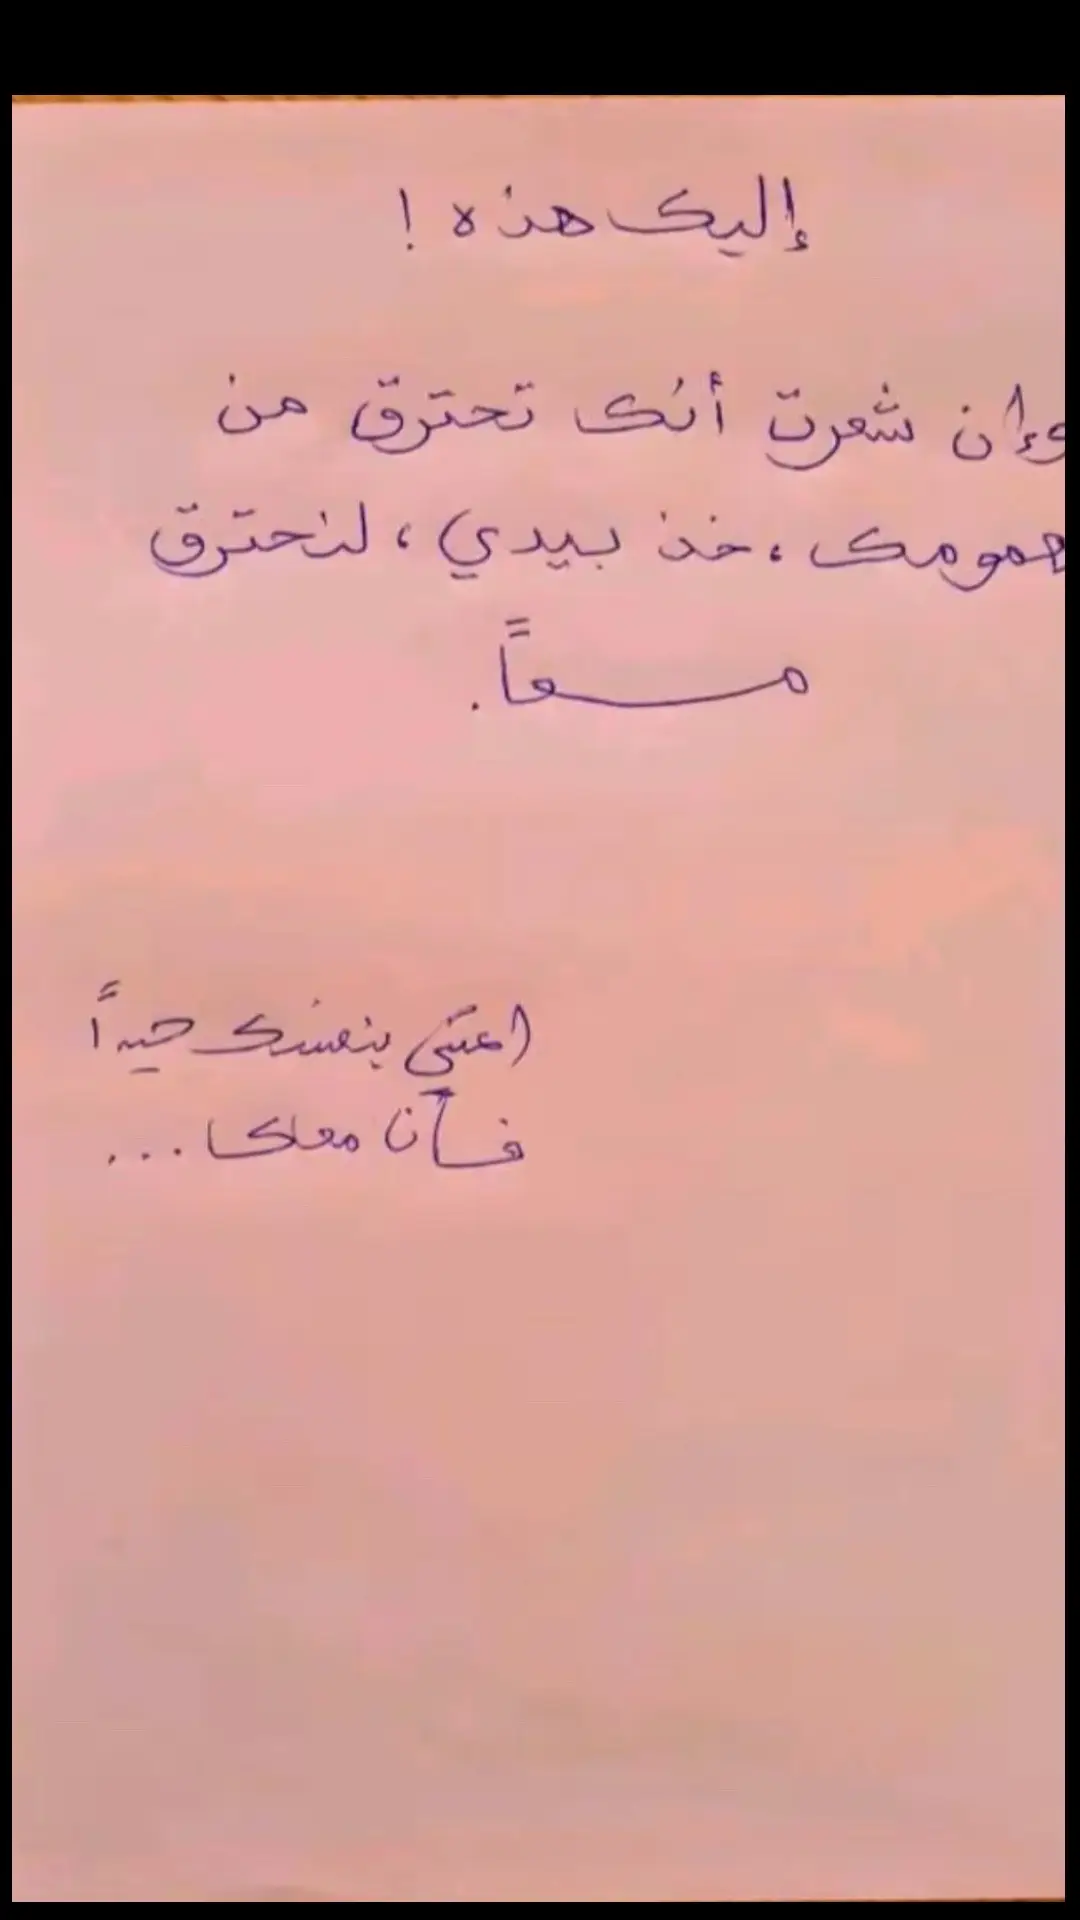 إليك هذه !
وإن شعرت أنك تحترق من
همومك ، خذ بيدي ، لنحترق
معاً .
اعتني بنفسك جيداً
فأنا معك ...